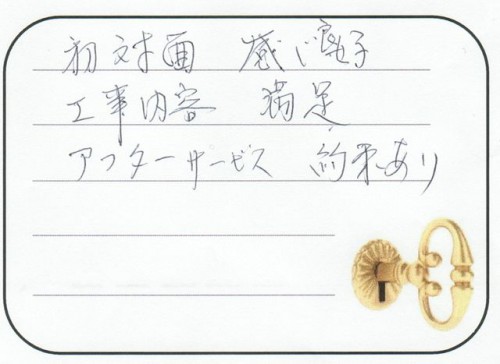 初対面 感じ良好
工事内容 満足
アフターサービス 約束あり